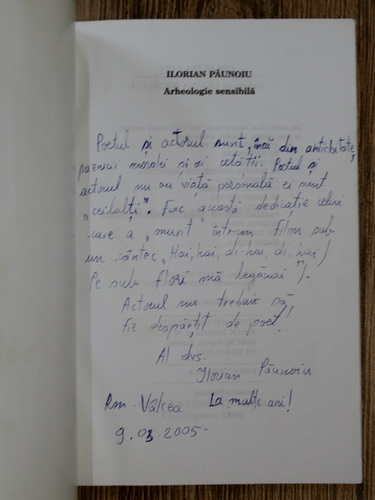 ILORIAN PĂUNOIU
Arheologie sensibilă
Poetul și actorul sunt, încă din antichitate,
paznici moralei și ai cetății. Poetul și
actorul nu au viață personală ei sunt
„ceilalți". Fac această dedicație celui
care a „murit" într-un film sub
un cântec „Hai, hai, di, hai, di, hai)
Pe sub flori mă legănai").
Actorul nu trebuie să
fie despărțit de poet!
Al dvs.
Ilorian Păunoiu
Rm. Vâlcea La mulți ani!
9.03.2005.